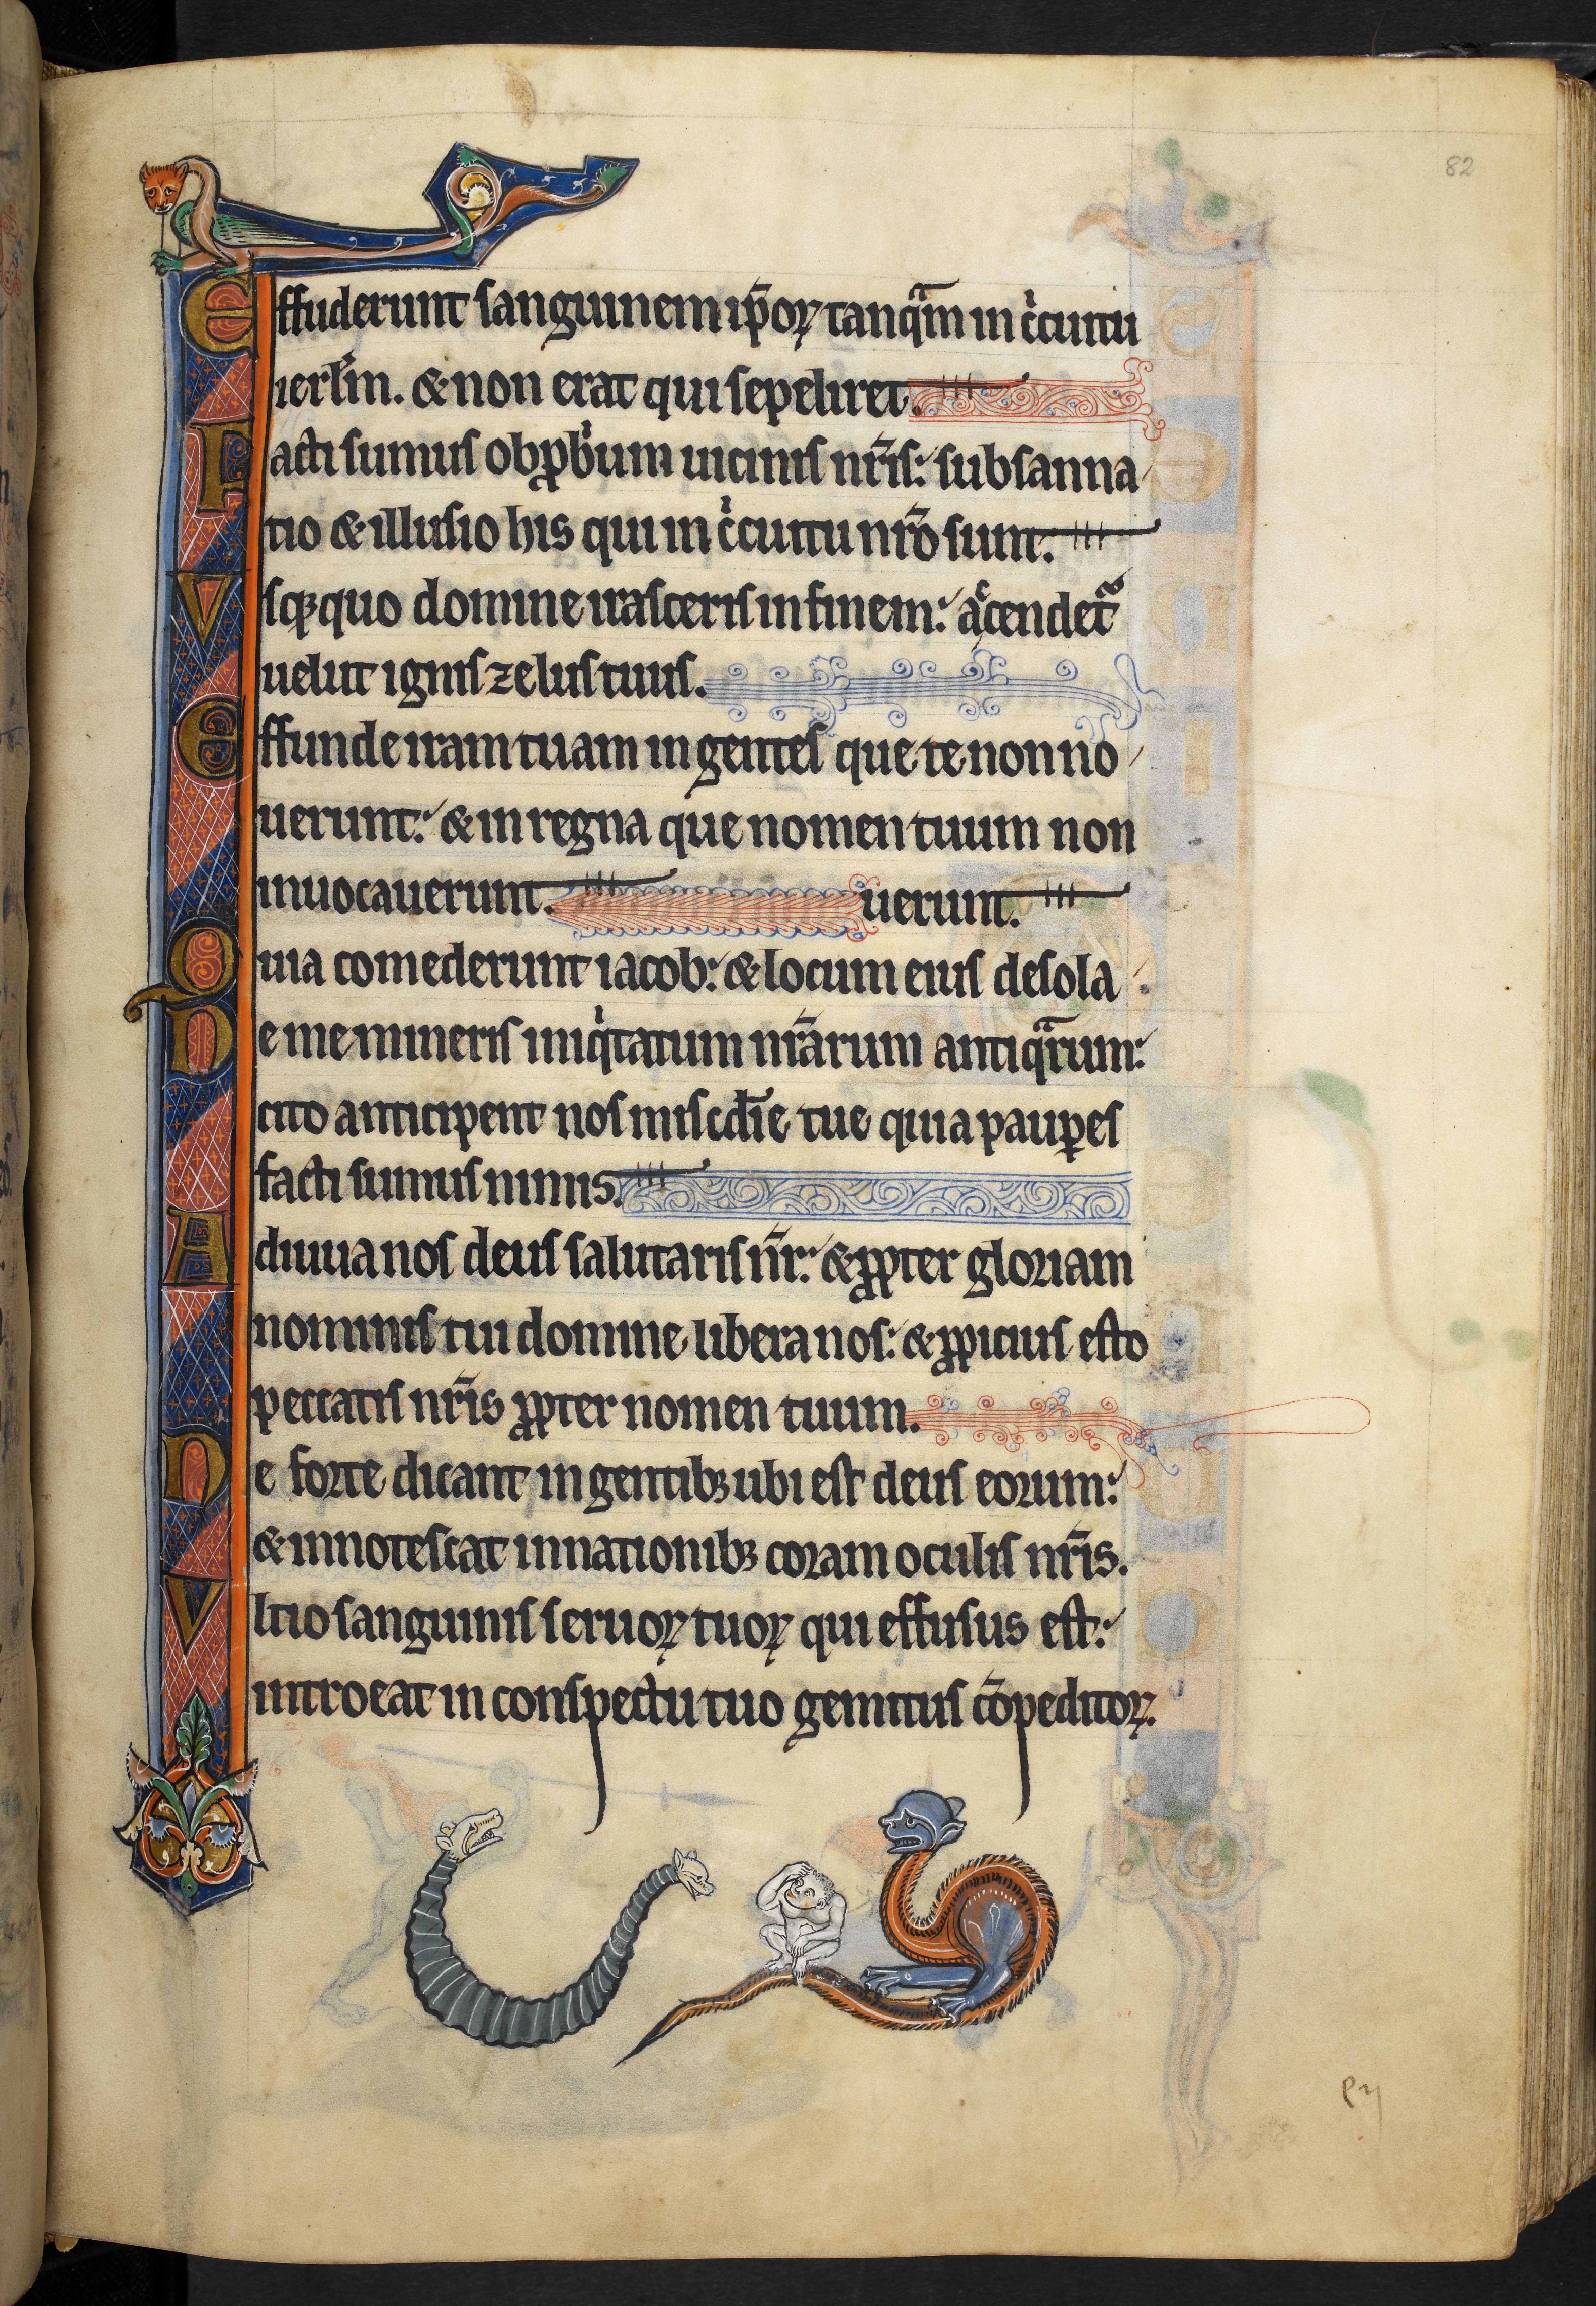 82
Effuderunt sanguinem ip̄oꝝ tanq̄m in cͥcuitu
ierl̄m. & non erat qui sepeliret.
Facti sumus obꝓbͥum uicinis nr̄is: subsanna
tio & illusio his qui in cͥcuitu nr̄o sunt.
Vsqꝫquo domine irasceris in finem: acͨendetᷓ
uelut ignis zelus tuus.
Effunde iram tuam in gentes que te non no
uerunt: & in regna que nomen tuum non
inuocauerunt. uerunt.
Quia comederunt iacob: & locum eius desola
Ne memineris iniqͥtatum nr̄arum antiqᷓrum:
cito anticipent nos misc̄die tue quia pauꝑes
facti sumus nimis.
Adiuua nos deus salutaris nr̄: & ꝓpter gloriam
nominis tui domine libera nos: & ꝓpicius esto
peccatis nr̄is ꝓpter nomen tuum.
Ne forte dicant in gentibꝫ ubi est deus eorum:
& innotescat in nationibꝫ coram oculis nr̄is.
Vltio sanguinis seruoꝝ tuoꝝ qui effusus est:
introeat in conspectu tuo gemitus cōpeditoꝝ.